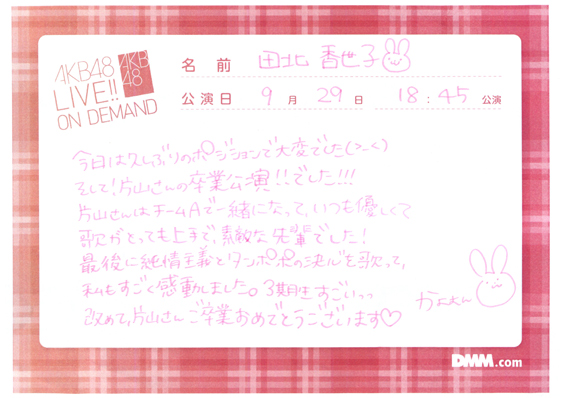 AKB48
LIVE!!
ON DEMAND
AKB
48
名 前 田北 香世子
公演日 9 月 29 日 18:45 公演
今日は久しぶりのポジションで大変でした(>_<)
そして！片山さんの卒業公演!!でした!!!
片山さんはチームAで一緒になって、いつも優しくて
歌がとっても上手で、素敵な先輩でした！
最後に純情主義とタンポポの決心を歌って、
私もすごく感動しました。3期生すごいっっ
改めて、片山さんご卒業おめでとうございます♡
かよよん
DMM.com